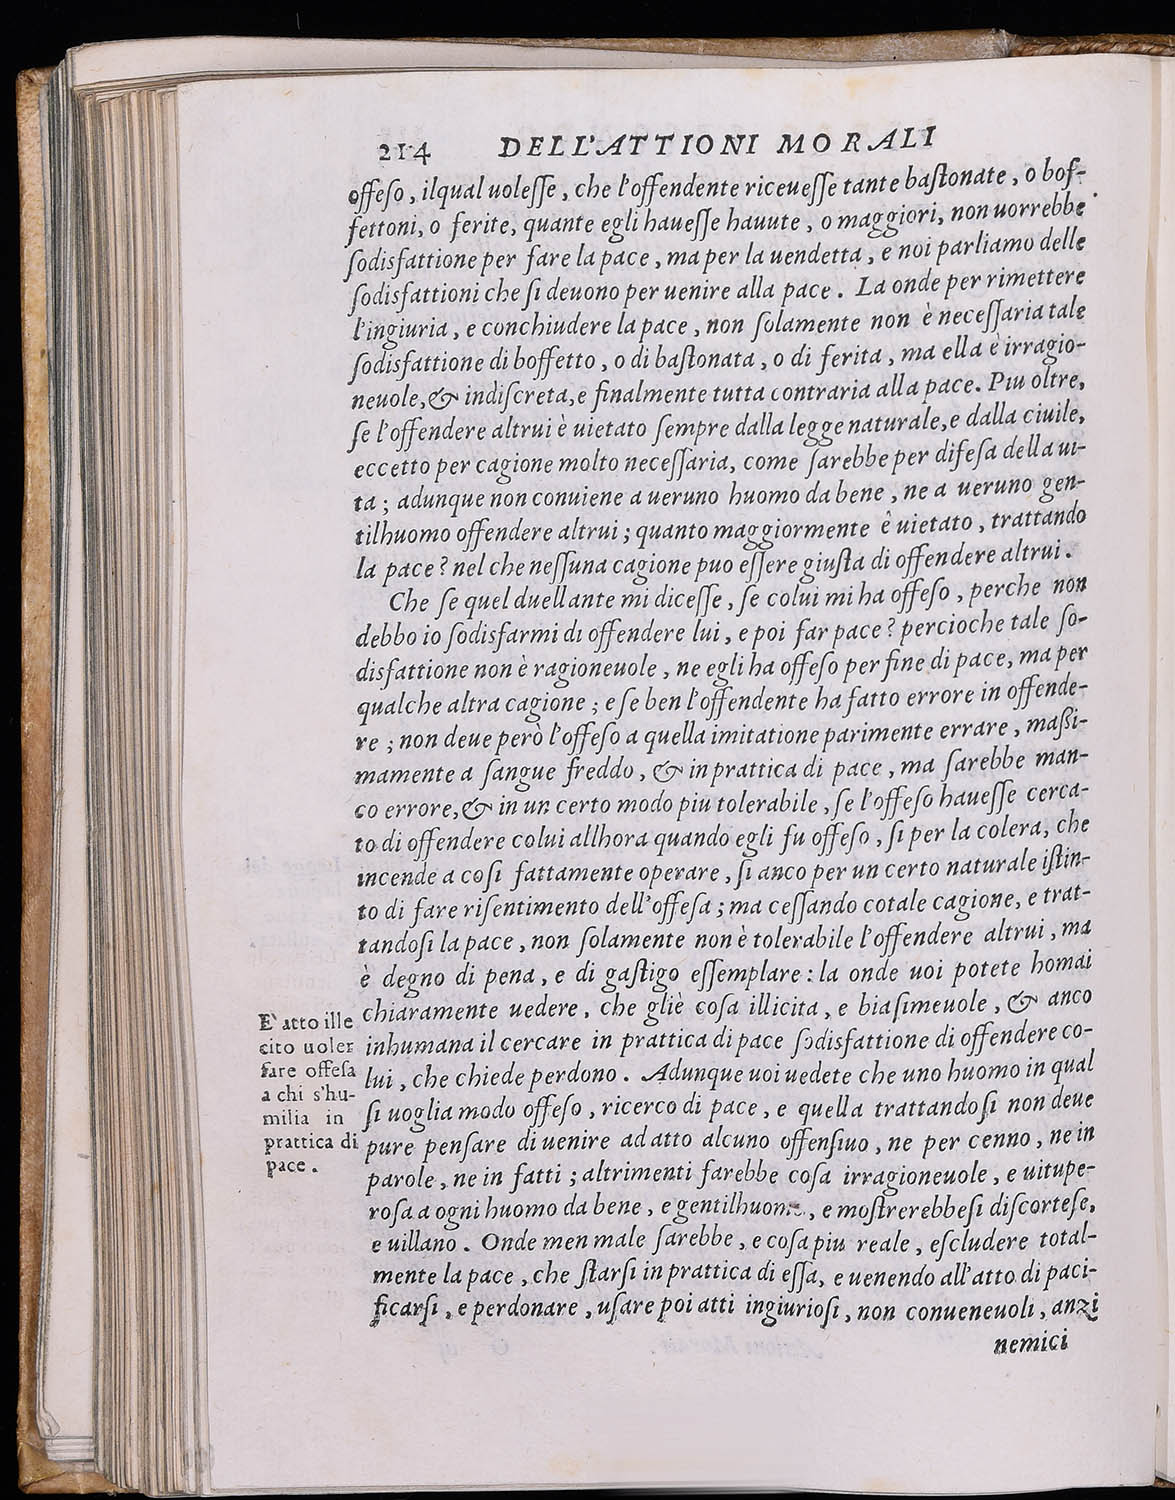 214 DELL'ATTIONI MORALI
offeſo, ilqual uoleſſe, che l'offendente riceueſſe tante baſtonate, o boſ-
fettoni, o ferite, quante egli haueſſe hauute, o maggiori, non uorrebbe
ſodisfattione per fare la pace, ma per la uendetta, e noi parliamo delle
ſodisfattioni che ſi deuono per uenire alla pace. La onde per rimettere
l'ingiuria, e conchiudere la pace, non ſolamente non è neceſſaria tale
ſodisfattione di boffetto, o di baſtonata, o di ferita, ma ella è irragio-
neuole, & indiſcreta, e finalmente tutta contraria alla pace. Piu oltre,
ſe l'offendere altrui è uietato ſempre dalla legge naturale, e dalla ciuile,
eccetto per cagione molto neceſſaria, come ſarebbe per difeſa della ui-
ta; adunque non conuiene a ueruno huomo da bene, ne a ueruno gen-
tilhuomo offendere altrui; quanto maggiormente è uietato, trattando
la pace? nel che neſſuna cagione puo eſſere giuſta di offendere altrui.
Che ſe quel duellante mi diceſſe, ſe colui mi ha offeſo, perche non
debbo io ſodisfarmi di offendere lui, e poi far pace? percioche tale ſo-
disfattione non è ragioneuole, ne egli ha offeſo per fine di pace, ma per
qualche altra cagione; e ſe ben l'offendente ha fatto errore in offende-
re; non deue però l'offeſo a quella imitatione parimente errare, maßi-
mamente a ſangue freddo, & in prattica di pace, ma ſarebbe man-
co errore, & in un certo modo piu tolerabile, ſe l'offeſo haueſſe cerca-
to di offendere colui allhora quando egli fu offeſo, ſi per la colera, che
incende a coſi fattamente operare, ſi anco per un certo naturale iſtin-
to di fare riſentimento dell'offeſa; ma ceſſando cotale cagione, e trat-
tandoſi la pace, non ſolamente non è tolerabile l'offendere altrui, ma
è degno di pena, e di gaſtigo eſſemplare: la onde uoi potete homai
chiaramente uedere, che gliè coſa illicita, e biaſimeuole, & anco
inhumana il cercare in prattica di pace ſodisfattione di offendere co-
lui, che chiede perdono. Adunque uoi uedete che uno huomo in qual
ſi uoglia modo offeſo, ricerco di pace, e quella trattandoſi non deue
pure penſare di uenire ad atto alcuno offenſiuo, ne per cenno, ne in
parole, ne in fatti; altrimenti farebbe coſa irragioneuole, e uitupe-
roſa a ogni huomo da bene, e gentilhuomo, e moſtrerebbeſi diſcorteſe,
e uillano. Onde men male ſarebbe, e coſa piu reale, eſcludere total-
mente la pace, che ſtarſi in prattica di eſſa, e uenendo all'atto di paci-
ficarſi, e perdonare, uſare poi atti ingiurioſi, non conueneuoli, anzi
nemici
E' atto ille
cito uoler
fare offeſa
a chi s'hu-
milia in
prattica di
pace.